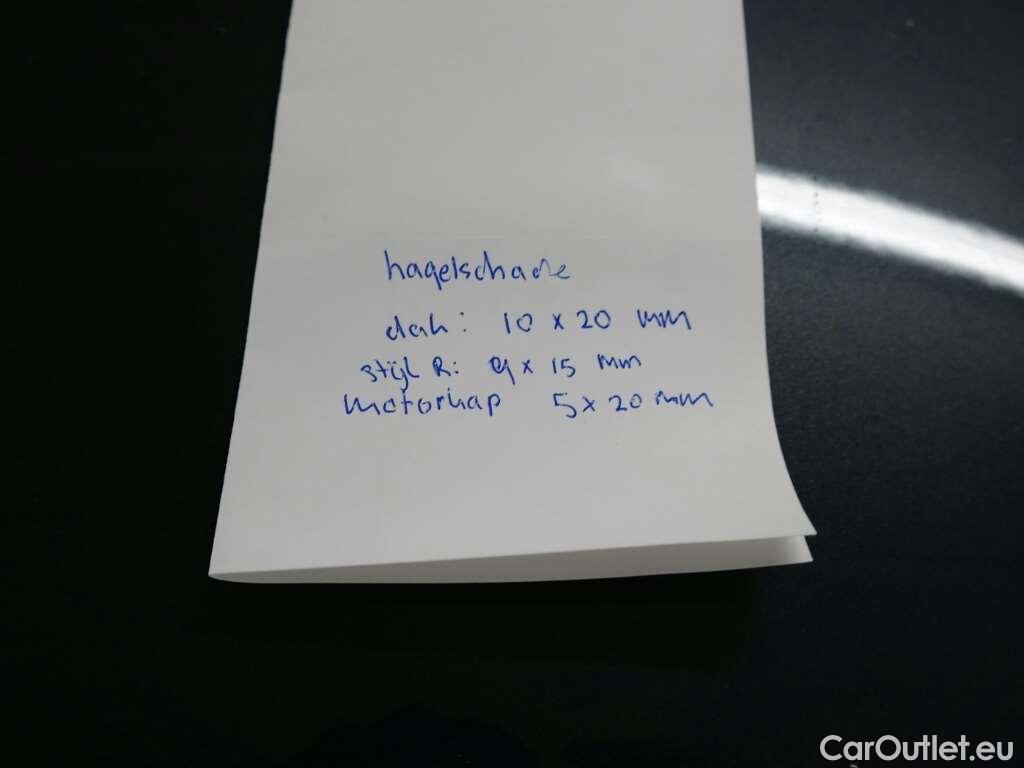 hagelschade
dak: 10 x 20 mm
stijl R: 9 x 15 mm
motorkap 5 x 20 mm
CarOutlet.eu